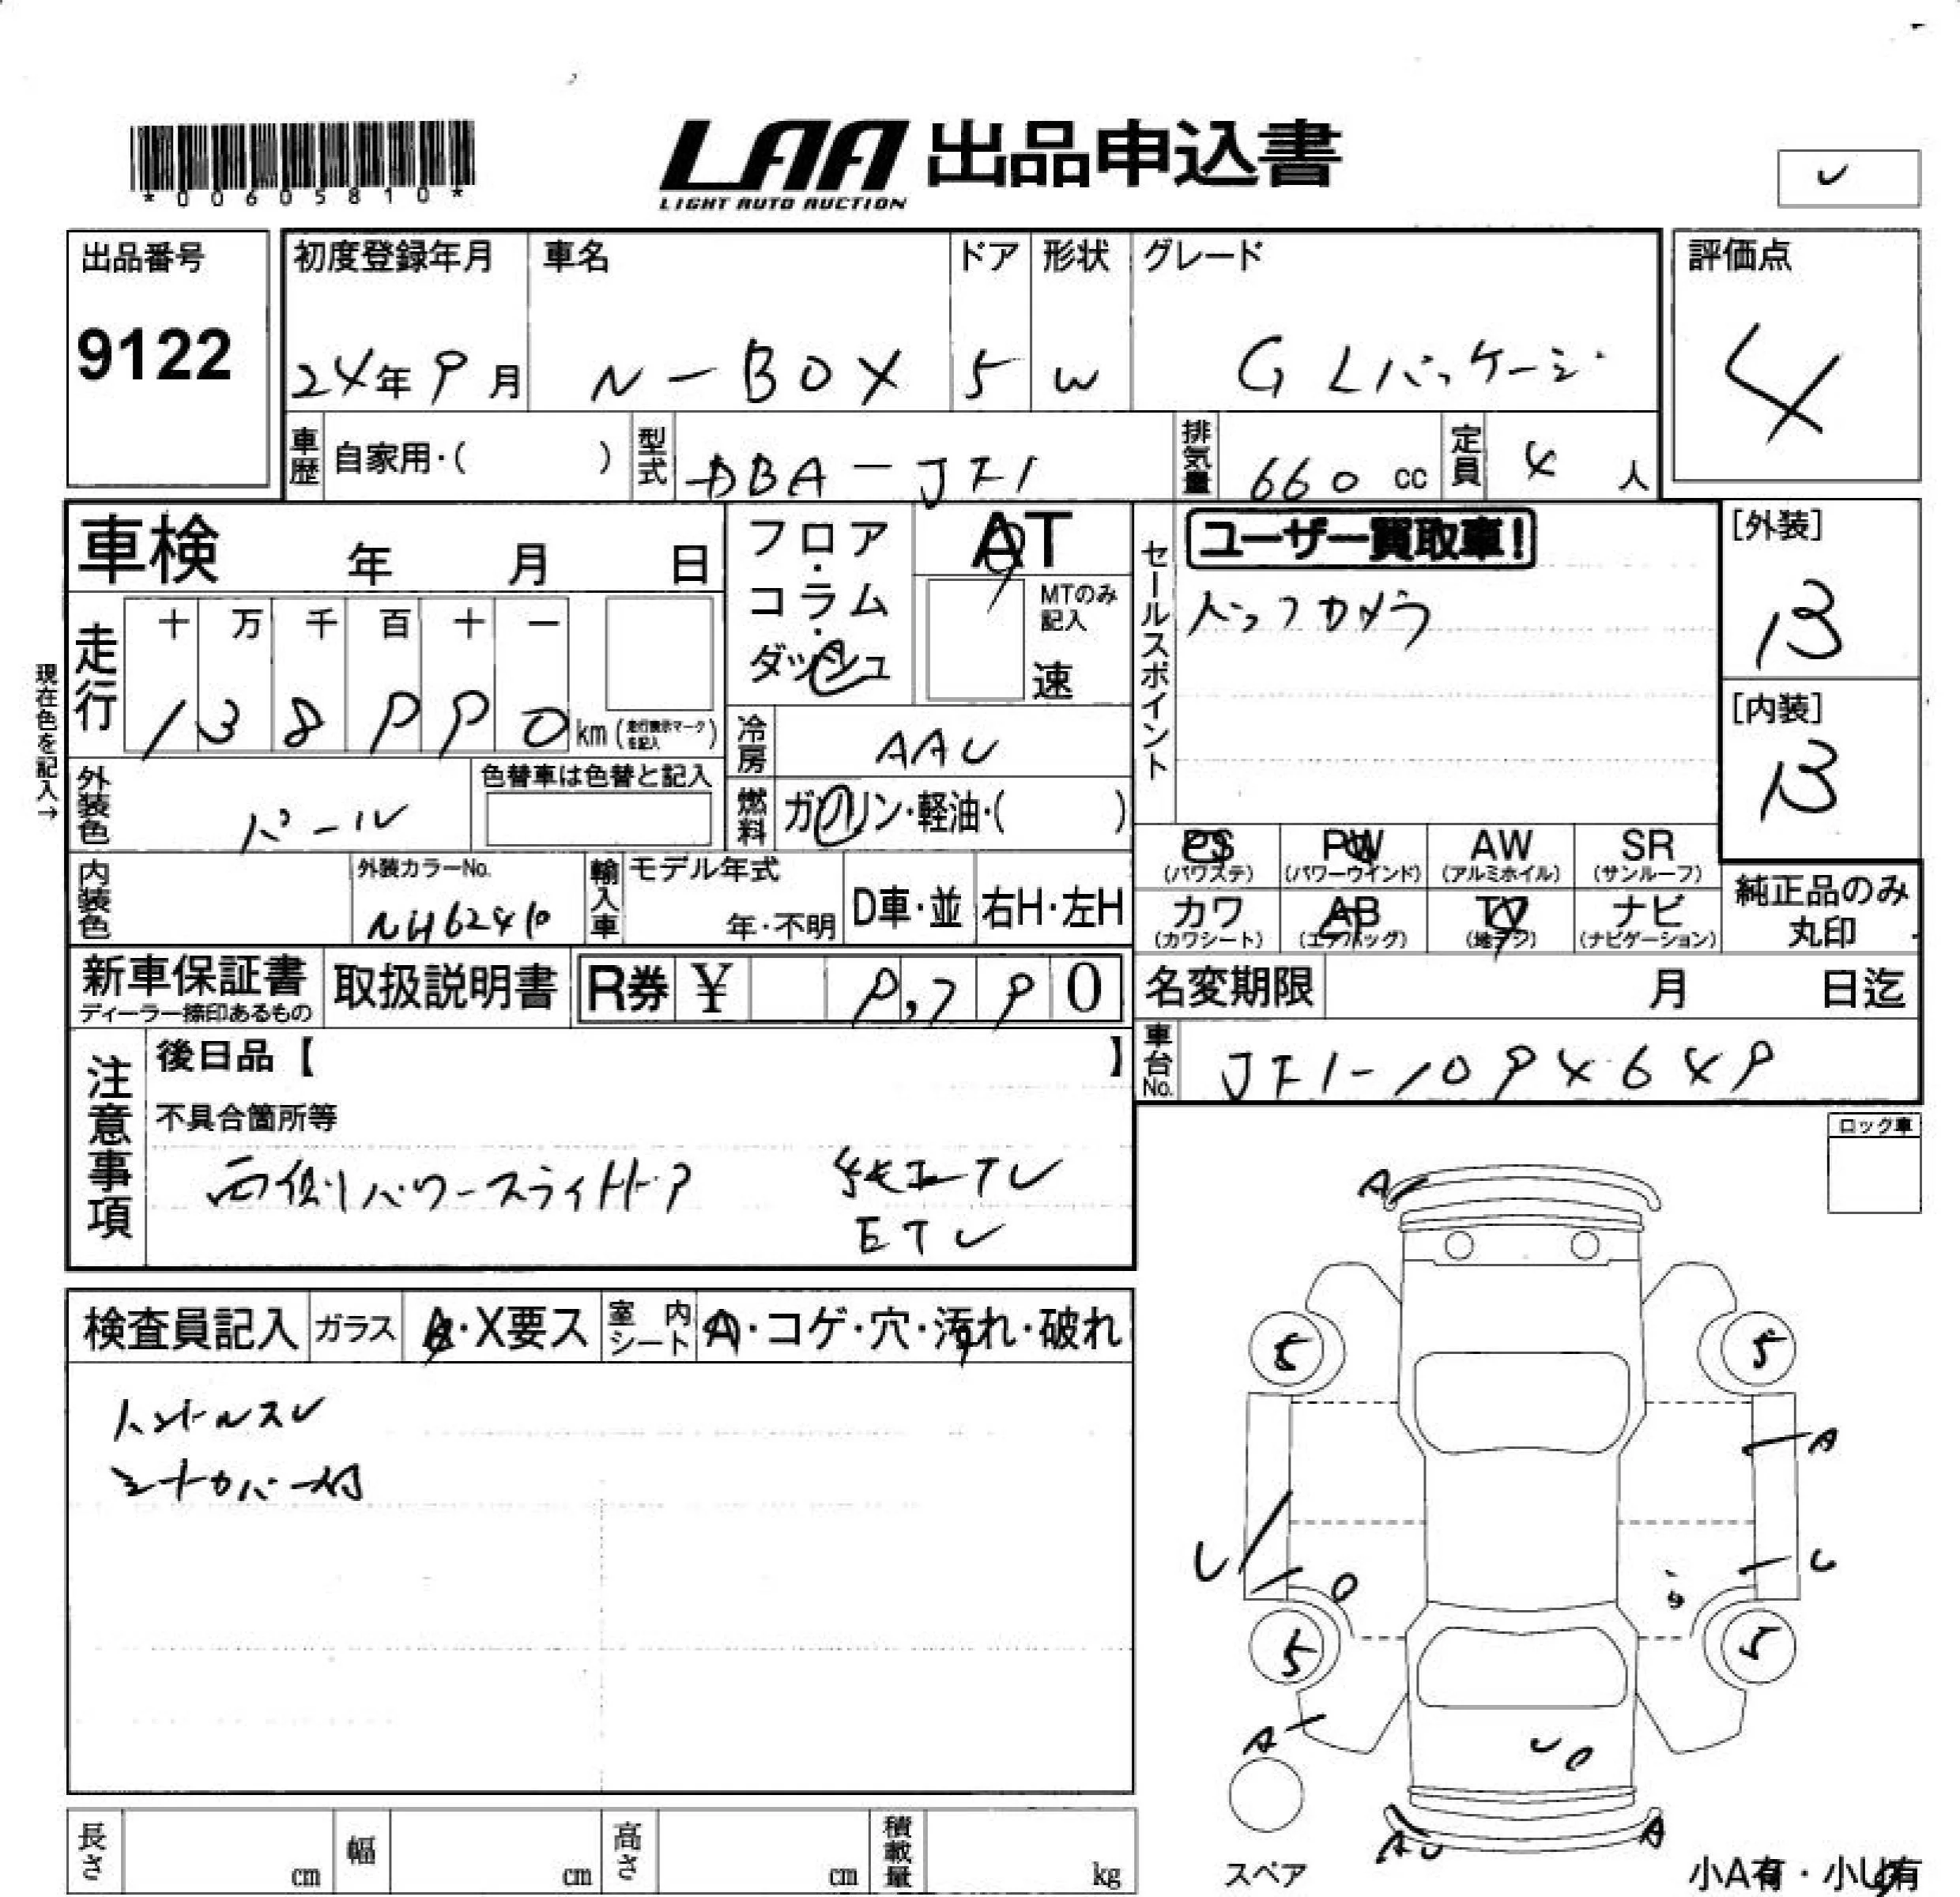 *00605810*
LAA 出品申込書
LIGHT AUTO AUCTION
出品番号
9122
初度登録年月
24年9月
車名
N-BOX
ドア
5
形状
W
グレード
G Lパッケージ
評価点
4
車歴 自家用・( )
型式 DBA-JF1
排気量 660 cc
定員 4 人
車検 年 月 日
フロア・コラム・ダッシュ
AT
MTのみ記入
速
セールスポイント
ユーザー買取車!
バックカメラ
[外装]
B
[内装]
B
現在色を記入→
走行
十 万 千 百 十 一
1 3 8 9 9 0 km (走行表示マークを記入)
冷房 AAC
燃料 ガソリン・軽油・( )
外装色 パール
色替車は色替と記入
内装色
外装カラーNo.
NH624P
輸入車
モデル年式
年・不明
D車・並
右H・左H
PS (パワステ)
PW (パワーウインド)
AW (アルミホイル)
SR (サンルーフ)
カワ (カワシート)
AB (エアバッグ)
TV (地デジ)
ナビ (ナビゲーション)
純正品のみ
丸印
新車保証書
ディーラー捺印あるもの
取扱説明書
R券 ¥ 9,790
名変期限 月 日迄
車台No. JF1-1094649
注意事項
後日品【 】
不具合箇所等
両側パワースライドドア 純正TV
ETC
ロック車
検査員記入
ガラス A・X要ス
室内シート A・コゲ・穴・汚れ・破れ
ハンドルスレ
シートカバー付
A
5 5
A
U U
5 5
A
U
A U A
スペア
小A有・小U有
長さ cm
幅 cm
高さ cm
積載量 kg